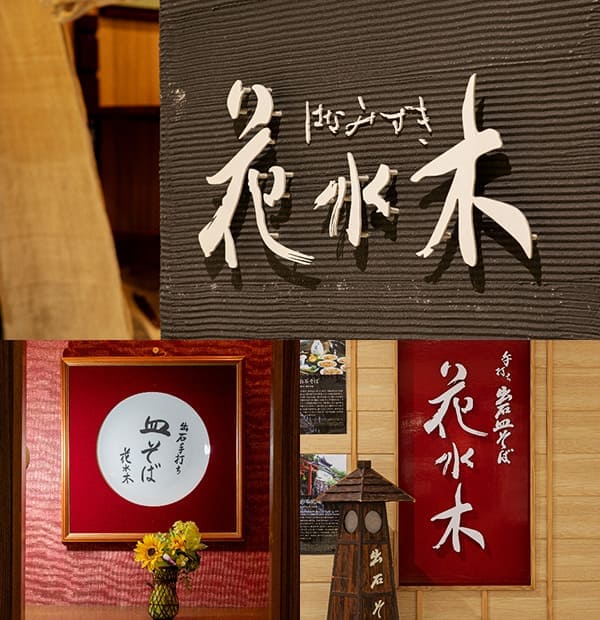 はなみずき
花水木
出石手打ち
皿そば
花水木
手打ち 出石皿そば
花水木
出石そ